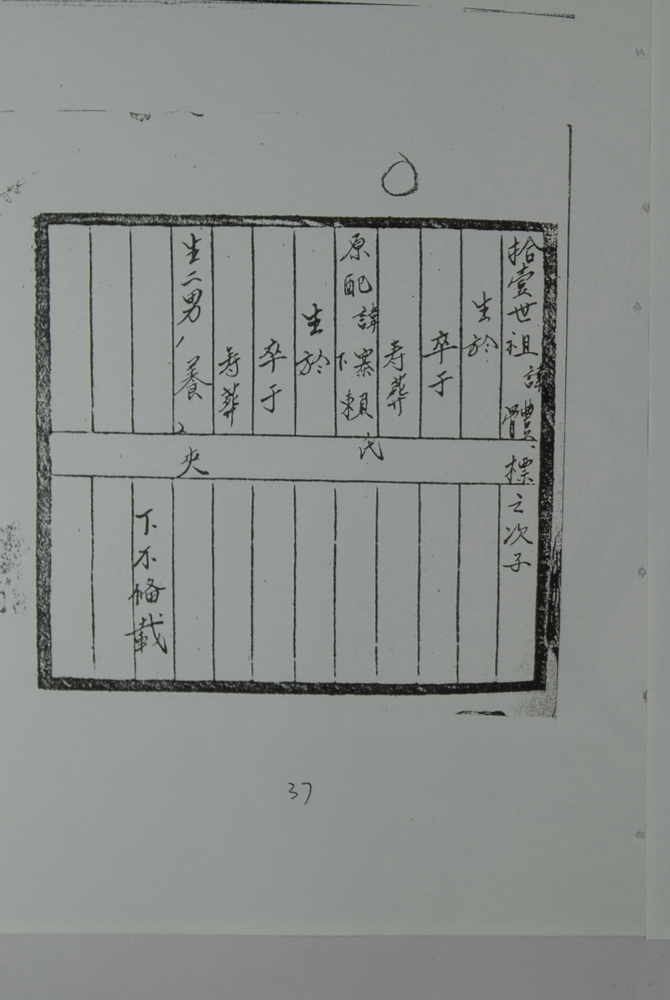 拾壹世祖諱體標之次子
生於
卒于
寿葬
原配諱下寨賴氏
生於
卒于
寿葬
生二男1養2央
下不俻載
37